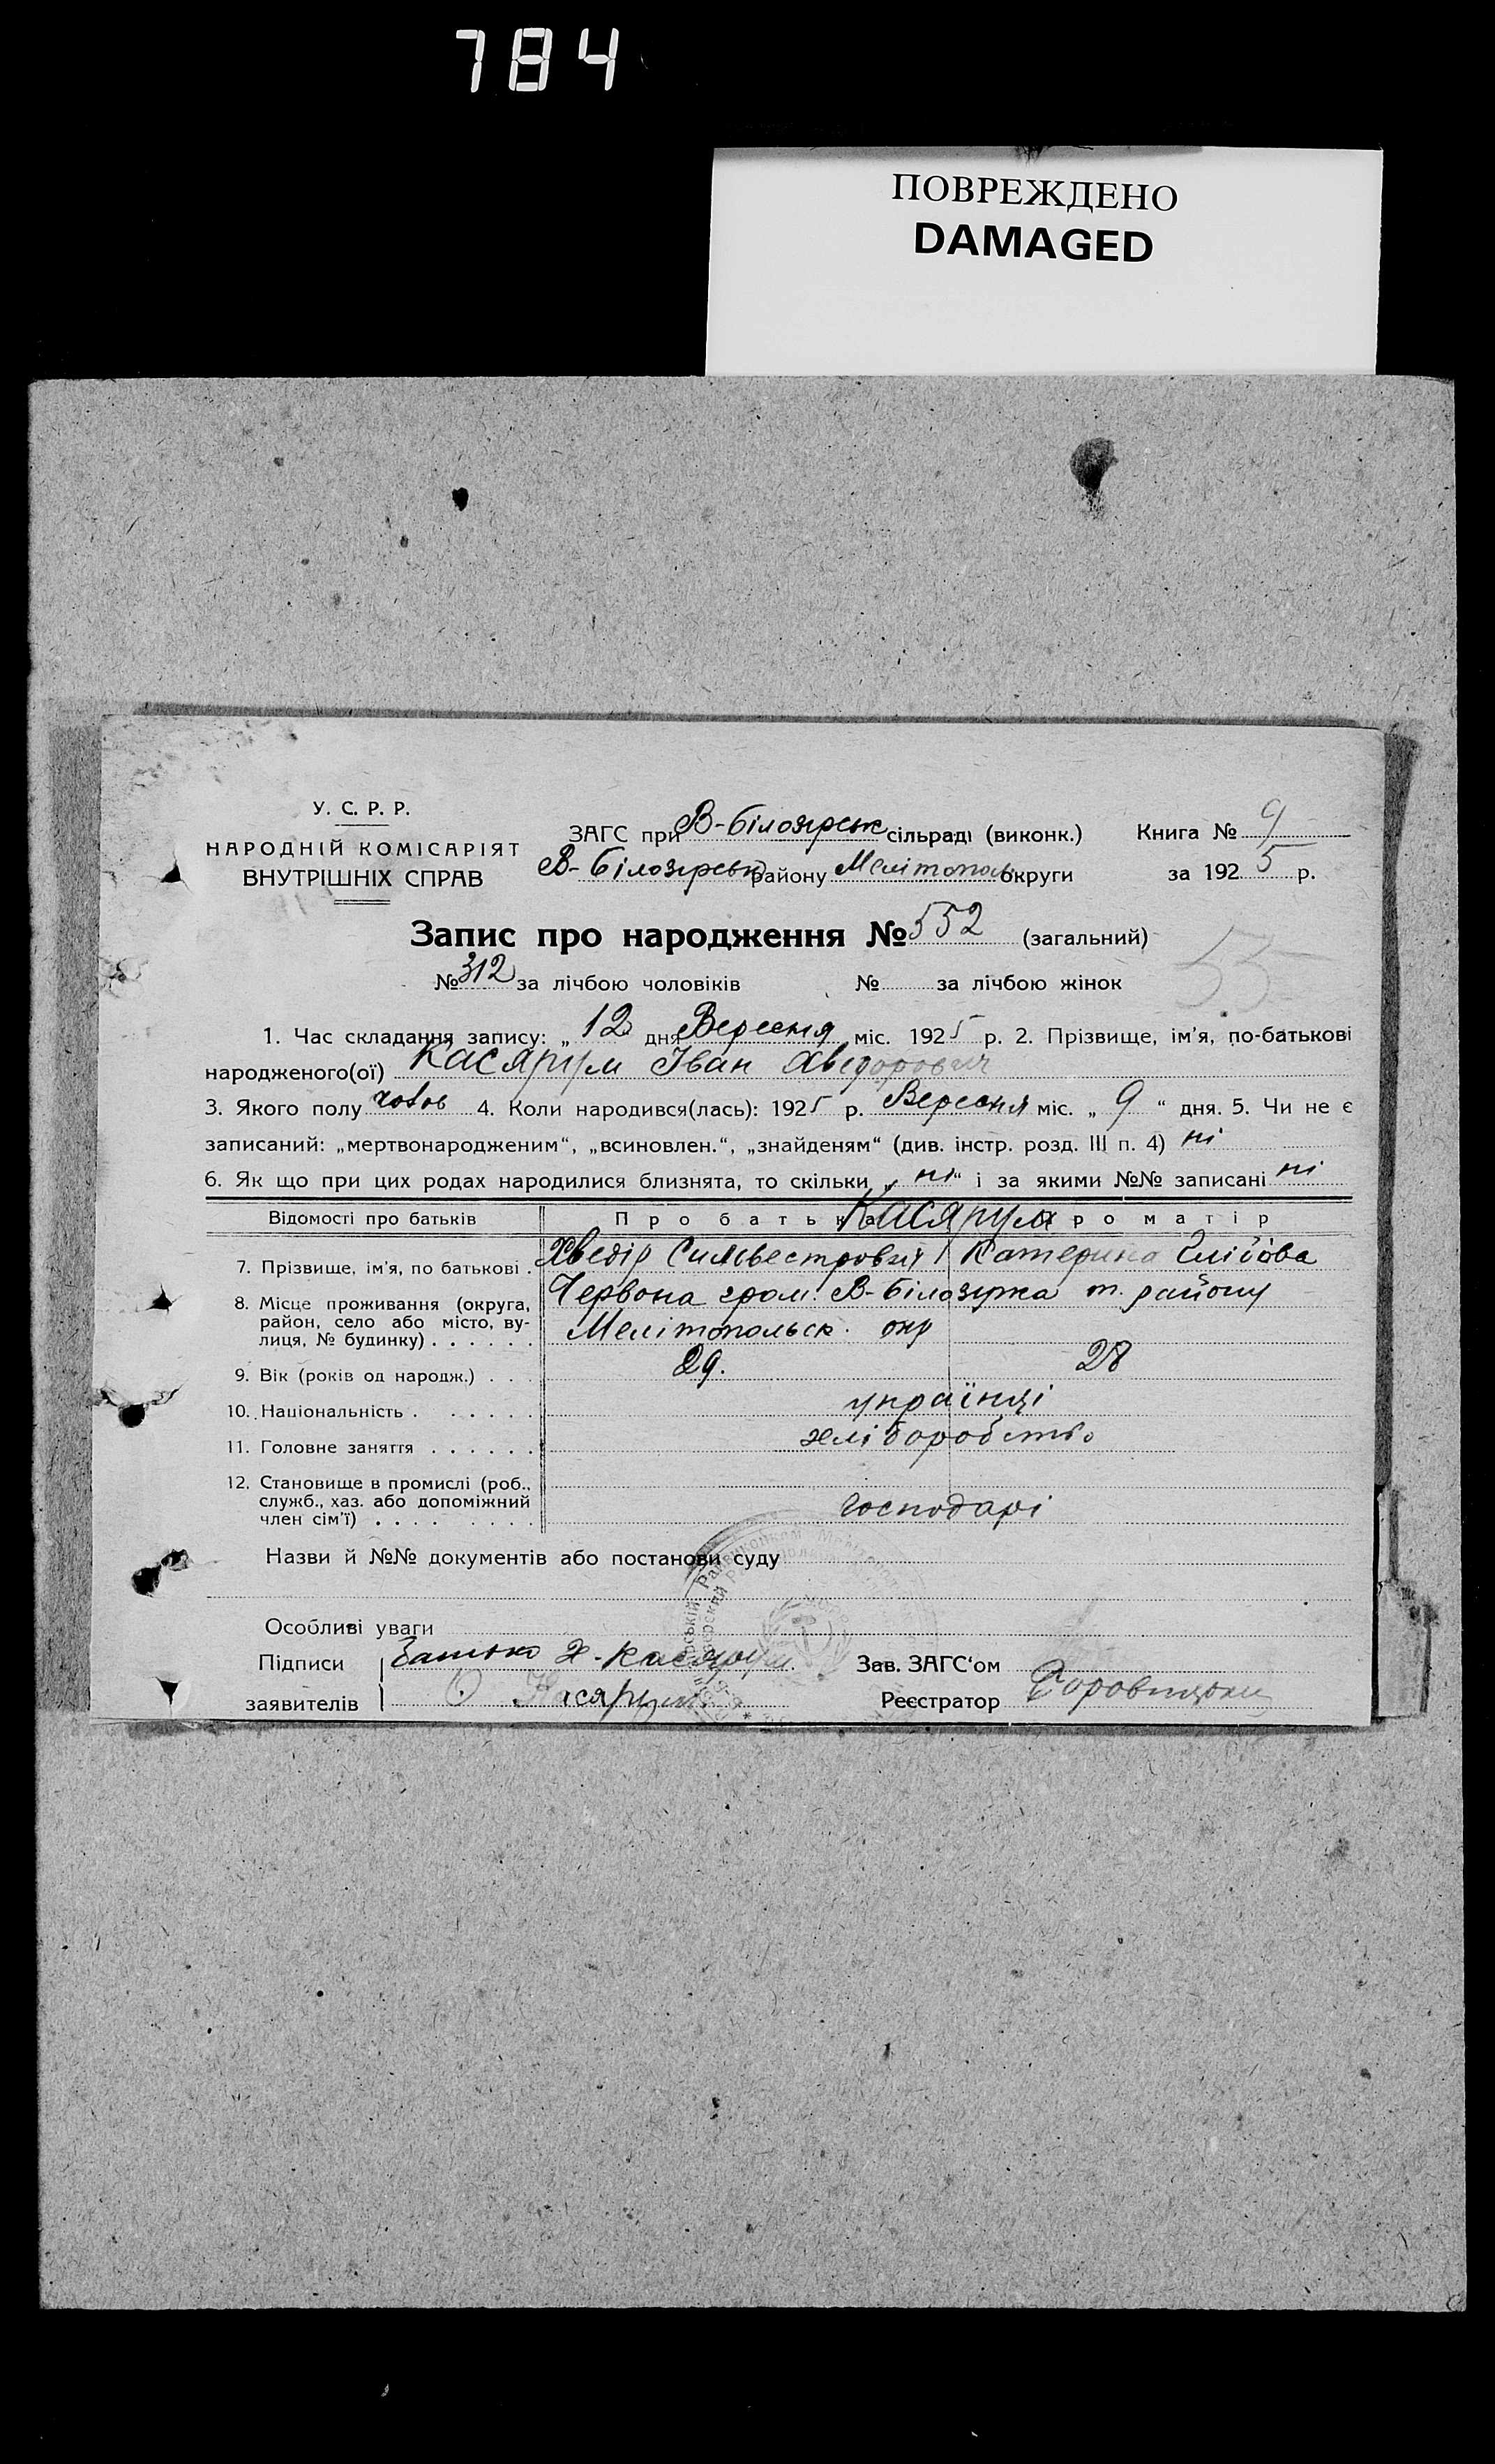 784
ПОВРЕЖДЕНО
DAMAGED
У. С. Р. Р.
НАРОДНІЙ КОМІСАРІЯТ
ВНУТРІШНІХ СПРАВ
ЗАГС при В-Білозірськ сільраді (виконк.)
В-Білозірськ району Мелітополь округи
Книга № 9
за 1925 р.
Запис про народження № 552 (загальний)
55
№ 312 за лічбою чоловіків № за лічбою жінок
1. Час складання запису: „ 12 дня Вересня міс. 1925 р. 2. Прізвище, ім'я, по-батькові
народженого(ої) Касярум Іван Хведорович
3. Якого полу чолов 4. Коли народився(лась): 1925 р. Вересня міс. „ 9 “ дня. 5. Чи не є
записаний: „мертвонародженим“, „всиновлен.“, „знайденям“ (див. інстр. розд. III п. 4) ні
6. Як що при цих родах народилися близнята, то скільки „ ні “ і за якими №№ записані ні
Відомості про батьків Про батька Касярум Про матір
7. Прізвище, ім'я, по батькові . Хведір Сильвестрович Катерина
8. Місце проживання (округа, Червона гром. В-Білозірка т. району
район, село або місто, ву-
лиця, № будинку) . . . . . . Мелітопольск. окр
9. Вік (років од народж.) . . . 29. 28
10. Національність . . . . . . українці
11. Головне заняття . . . . . . хліборобство
12. Становище в промислі (роб.,
служб., хаз. або допоміжний
член сім'ї) . . . . . . . . господарі
Назви й №№ документів або постанови суду
Особливі уваги
Підписи Батько Х. Касярум.
Зав. ЗАГС'ом
заявителів Касярум.
Реєстратор